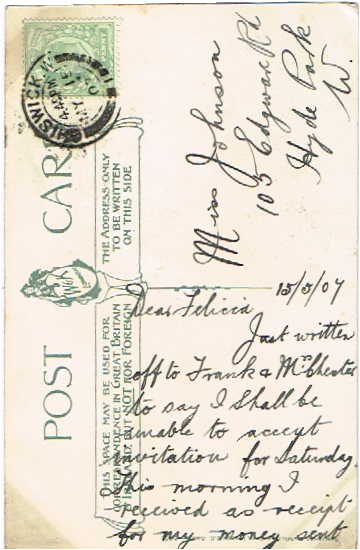 POST CARD
THE ADDRESS ONLY
TO BE WRITTEN
ON THIS SIDE
THIS SPACE MAY BE USED FOR
CORRESPONDENCE IN GREAT BRITAIN
INLAND, BUT NOT FOR FOREIGN
CHISWICK. W
4.45 PM
MY 15
07
Miss Johnson
105 Edgware Rd
Hyde Park
W.
15/5/07
Dear Felicia
Just written
off to Frank & Mr Chester
to say I shall be
unable to accept
invitation for Saturday
This morning I
received as receipt
for my money sent